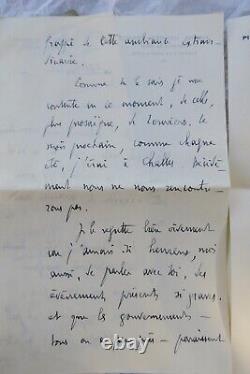 frappé de cette ambiance extraor-
dinaire.
Comme tu le sais je me
contente en ce moment, de celle,
plus prosaïque, de Louviers. Le
mois prochain, comme chaque
été, j'irai à Challes. Décidé-
ment nous ne nous rencontre-
rons pas.
Je le regrette bien vivement
car j'aurais été heureux, moi
aussi, de parler avec toi, des
événements présents si graves
et que les gouvernements –
tous ou – paraissent